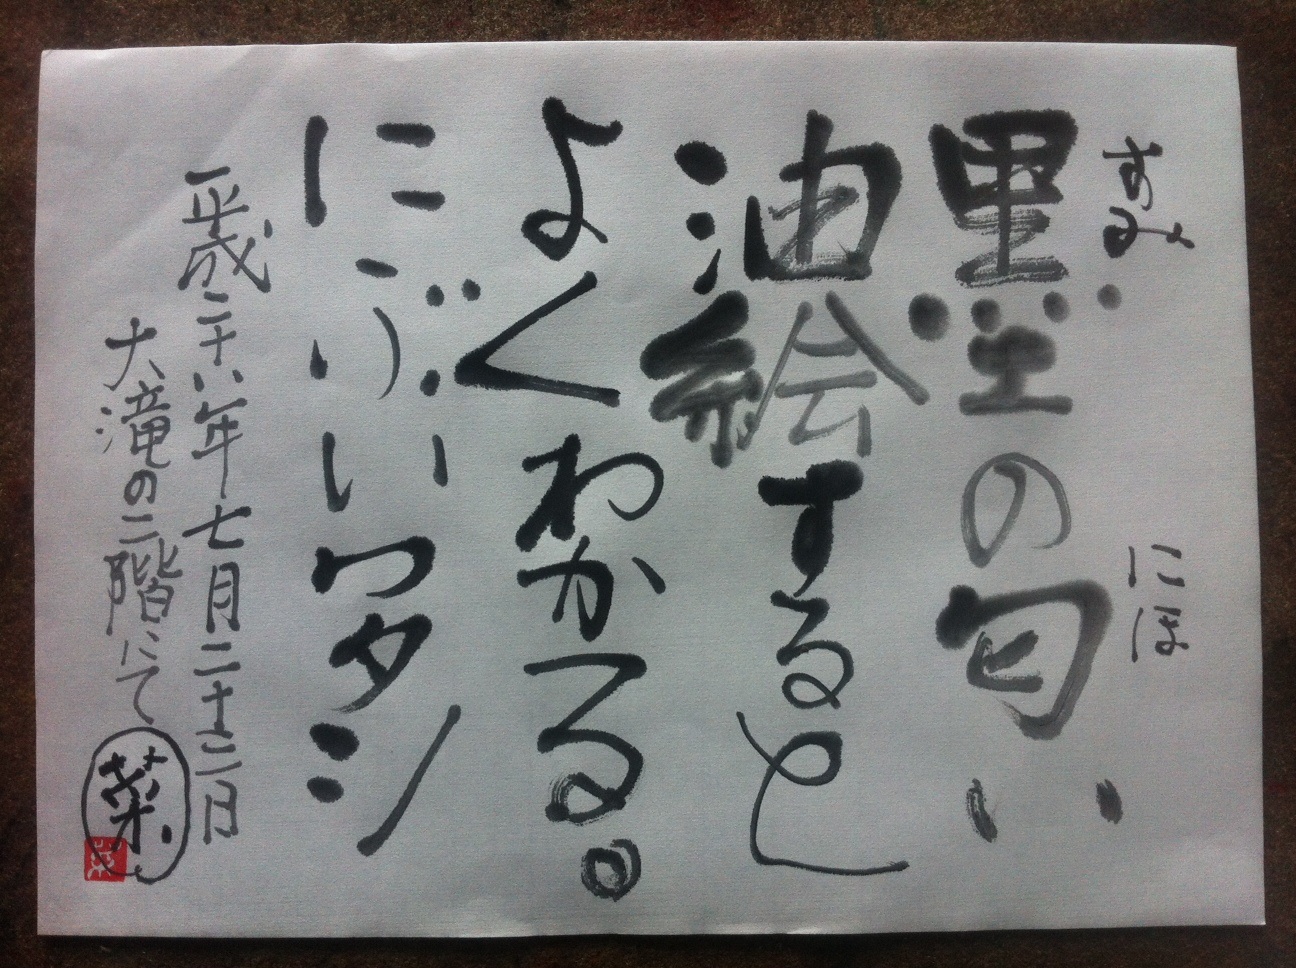 すみ にほ
墨の匂い
油絵すると
よくわかる。
にぶいワタシ
平成二十六年七月二十三日
大滝の二階にて
菜